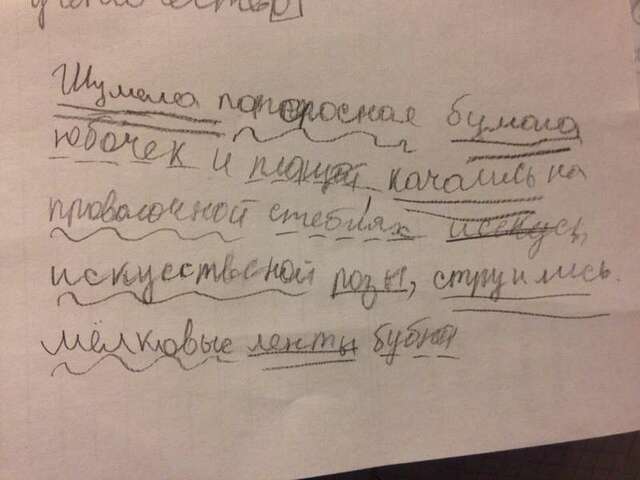 Шумела папоросная бумага
юбочек и плащей, качались на
проволочной стеблях
искусственной розы, струились
шёлковые ленты